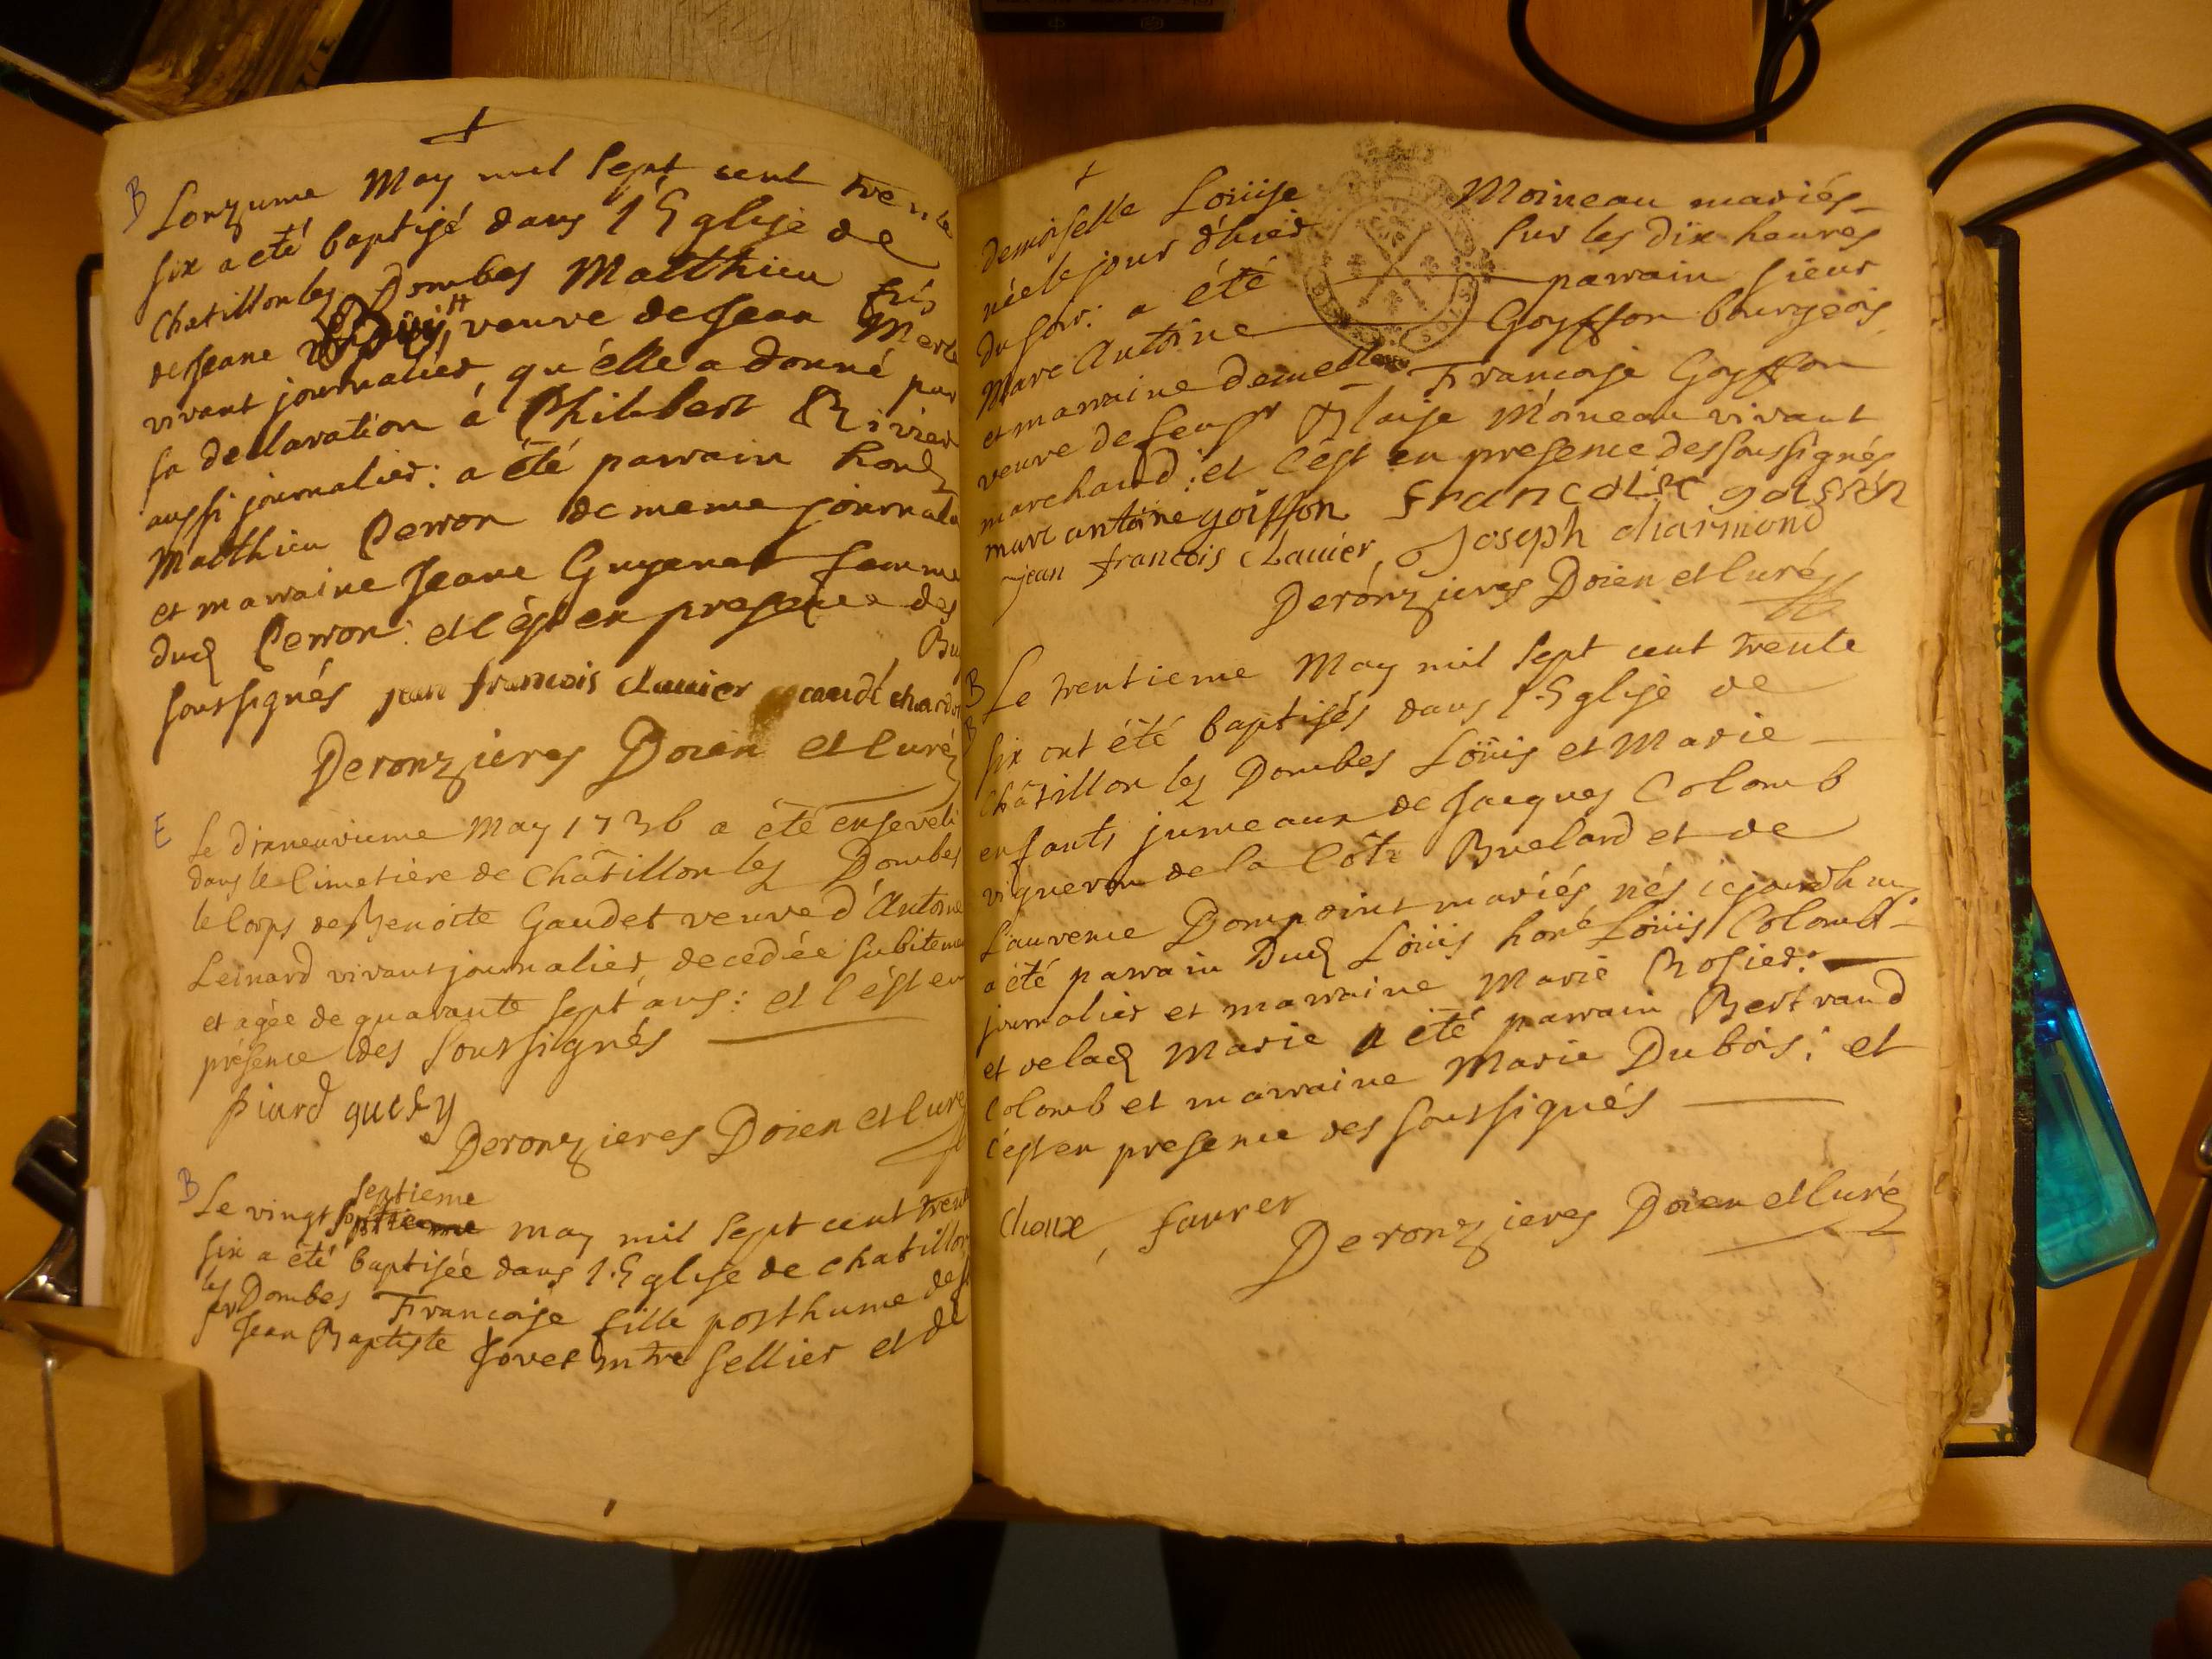 B Lonzieme May mil Sept cent trente
six a été baptisé dans l'Eglise de
Chatillon les Dombes Matthieu fils
de Jeane veuve de Jean Merle
vivant journalier, qu'elle a donné par
sa declaration à Philibert Rivier
aussi journalier: a été parrain hond
Matthieu Perron de meme journalier
et marraine Jeane Guyenet femme
dud Perron: et c'est en presence des
soussignés jean francois clauier
Deronzieres Doien et Curé
E Le dixneuvieme May 1736 a été enseveli
dans le Cimetière de Châtillon les Dombes
le Corps de Benoite Gaudet veuve d'Antoine
Leinard vivant journalier, decedée subitement
et agée de quarante sept ans: et c'est en
présence des soussignés
piard
Deronzieres Doien et Curé
septieme
B Le vingt may mil Sept cent trente
six a été baptisée dans l'Eglise de chatillon
les Dombes Francoise fille posthume de
sr Jean Baptiste Jovet mtre Sellier et de
demoiselle Loüise Moineau mariés
née le jour d'hier sur les dix heures
du soir: a été parrain sieur
Marc Antoine Goyffon bourgeois
et marraine demelle Francoise Goyffon
veuve de feu sr Blaise Moineau vivant
marchand: et c'est en presence des soussignés
marc antoine goiffon francoise goifon
jean francois clauier, Joseph charmond
Deronzieres Doien et Curé
B Le trentieme May mil Sept cent trente
B six ont été baptisés dans l'Eglise de
Châtillon les Dombes Loüis et Marie
enfants jumeaux de Jacques Colomb
vigneron de la Côte Buelard et de
Laurence Dompoint mariés nés icjourdhuy
a été parrain dud Loüis honé Loüis Colomb
journalier et marraine Marie Rosier:
et de lad Marie a été parrain Bertrand
Colomb et marraine Marie Dubois: et
c'est en presence des soussignés
Choux, faurer
Deronzieres Doien et Curé